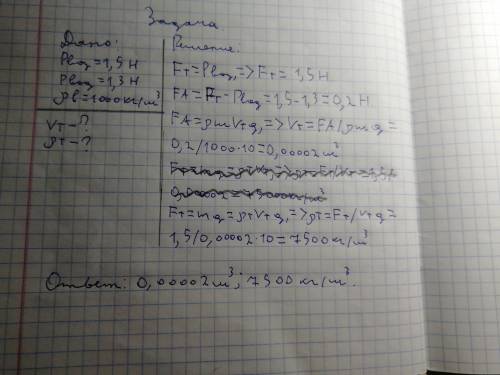 Задача.
Дано:
Pвоз=1,5 Н
Pвод=1,3 Н
ρв=1000 кг/м³
Vт-?
ρт-?
Решение:
Fт=Pвоз,=>Fт= 1,5 Н
FA=Fт-Pвод=1,5-1,3=0,2 Н
FA=ρжVтg,=>Vт=FA/ρжg=
0,2/1000·10=0,00002 м³
0,00002=75000 кг/м³
Fт=mg=ρтVтg,=>ρт=Fт/Vтg=
1,5/0,00002·10=7500 кг/м³
Ответ: 0,00002 м³; 7500 кг/м³.